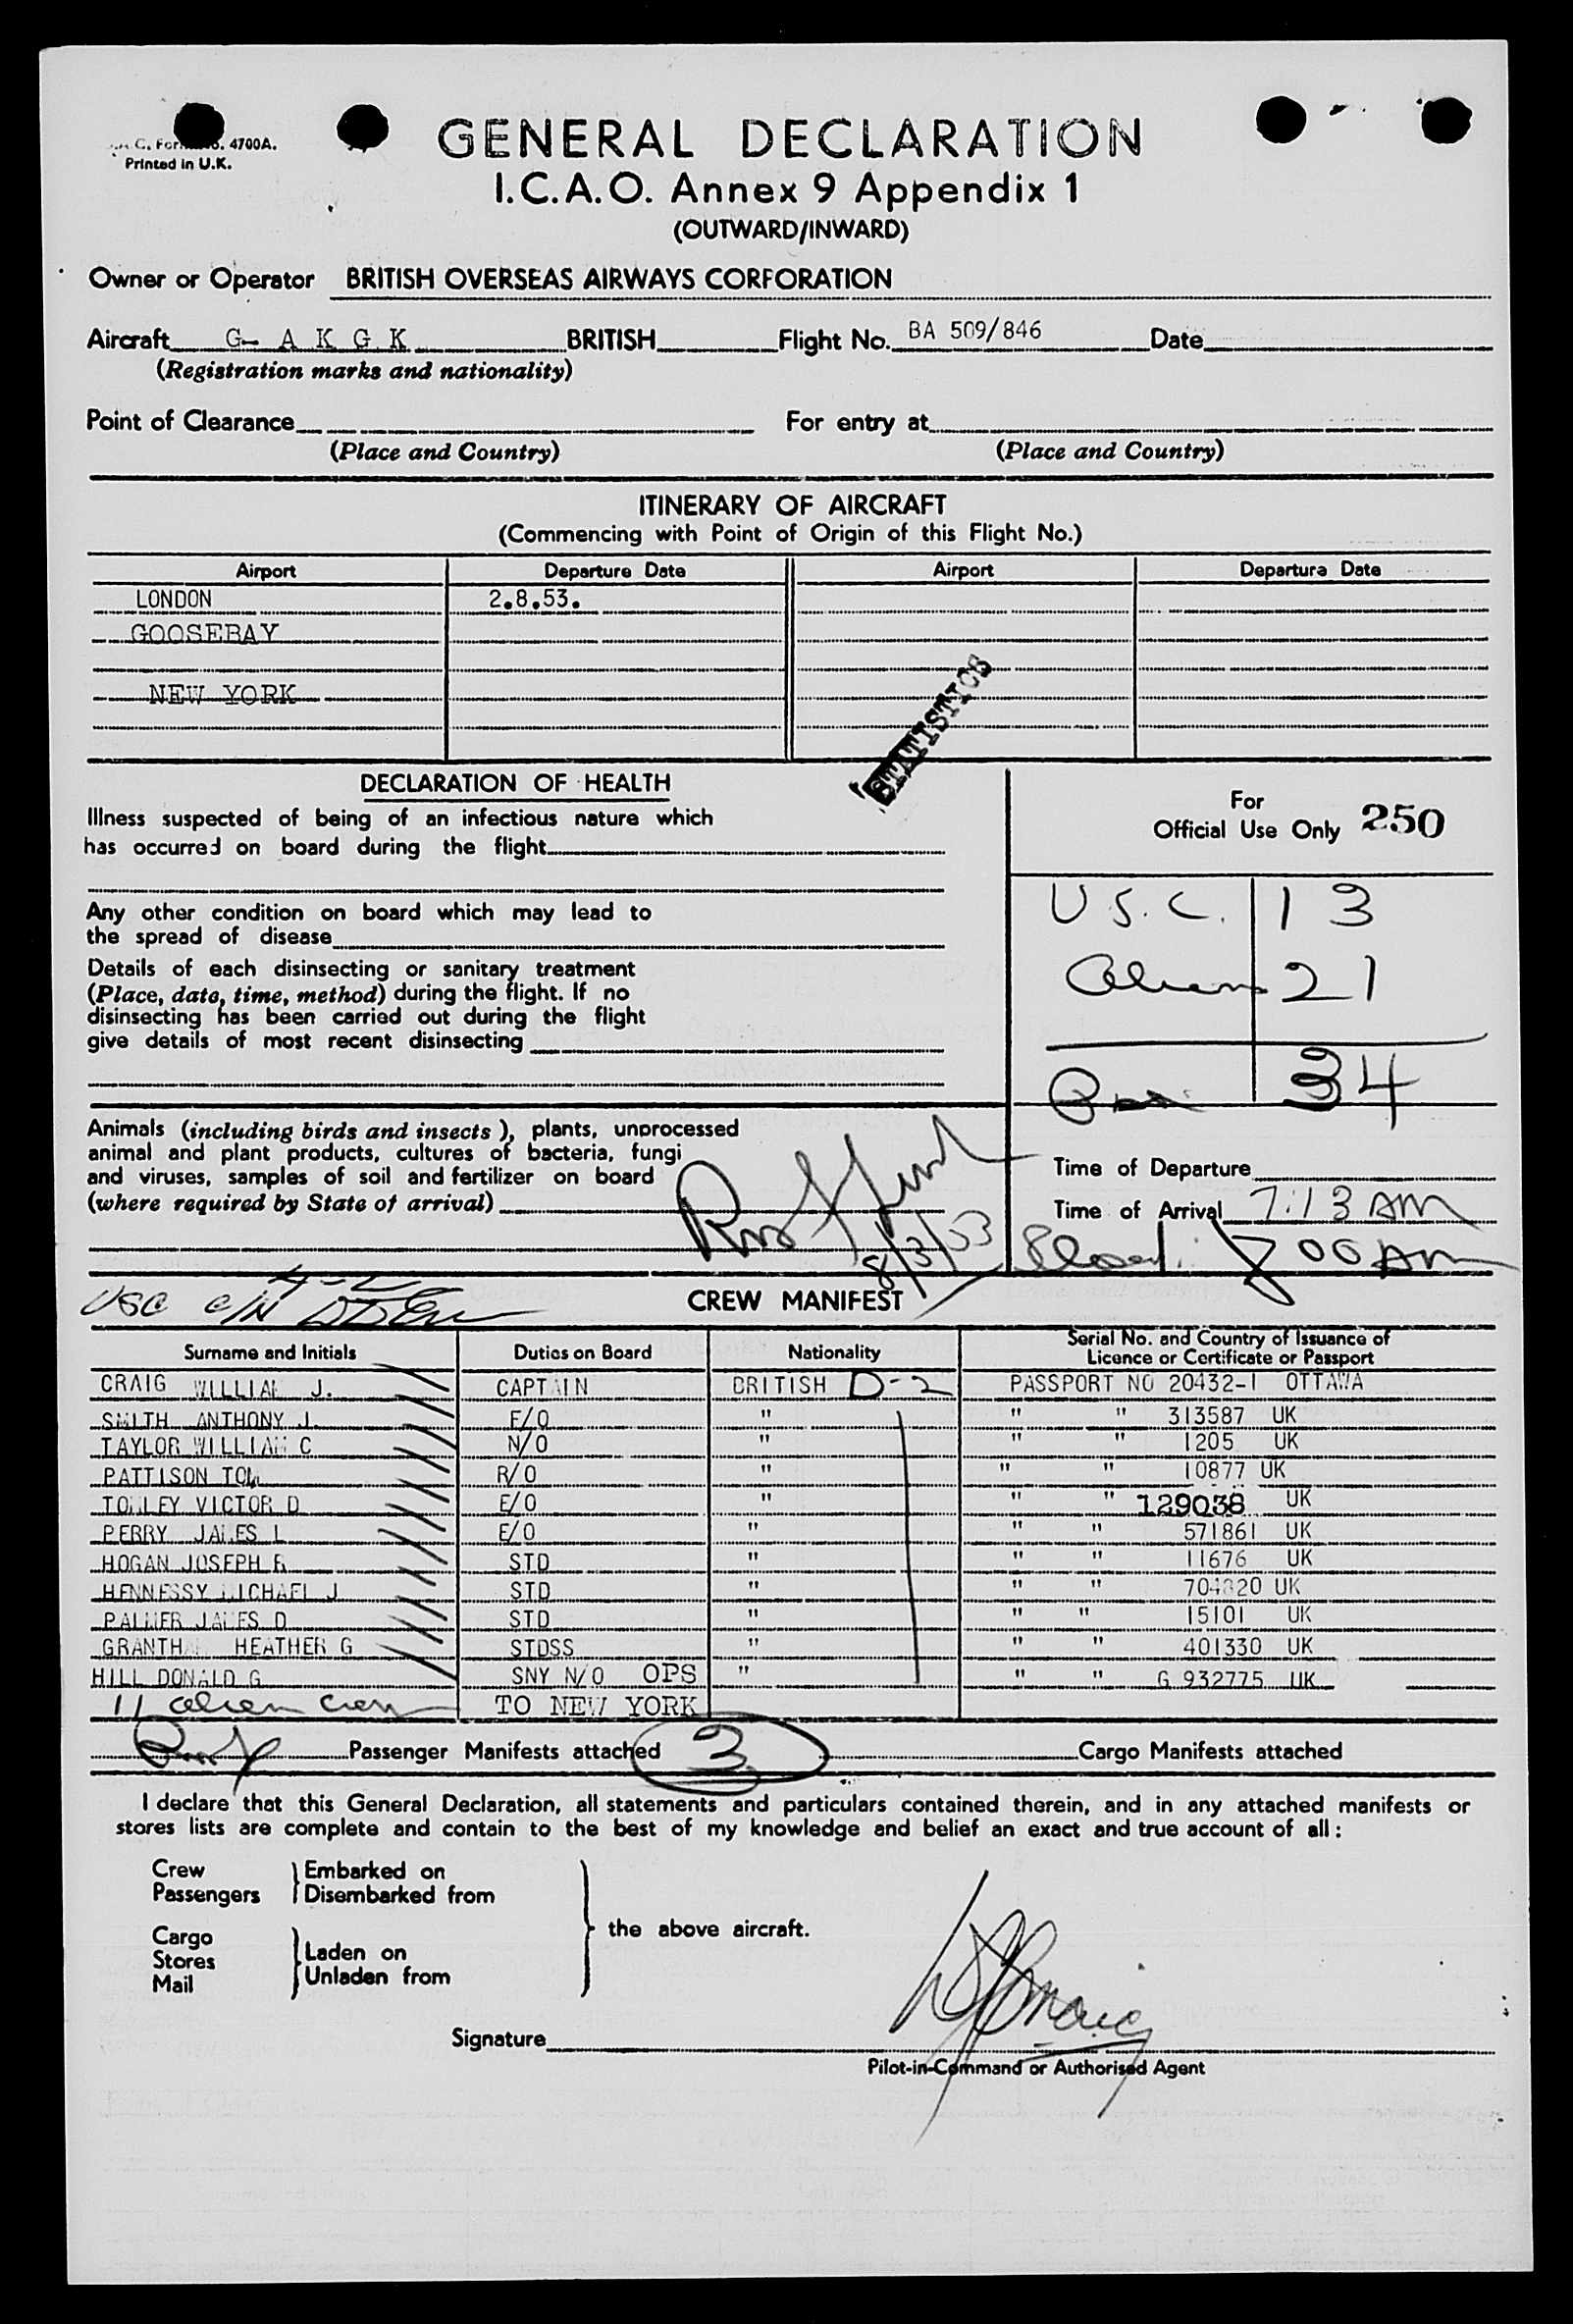 4700A.
Printed in U.K.
GENERAL DECLARATION
I.C.A.O. Annex 9 Appendix 1
(OUTWARD/INWARD)
Owner or Operator BRITISH OVERSEAS AIRWAYS CORPORATION
Aircraft G- A K G K BRITISH Flight No. BA 509/846 Date
(Registration marks and nationality)
Point of Clearance For entry at
(Place and Country) (Place and Country)
ITINERARY OF AIRCRAFT
(Commencing with Point of Origin of this Flight No.)
Airport Departure Date Airport Departure Date
LONDON 2.8.53.
GOOSEBAY
NEW YORK
STATISTICS
DECLARATION OF HEALTH
Illness suspected of being of an infectious nature which
has occurred on board during the flight
Any other condition on board which may lead to
the spread of disease
Details of each disinsecting or sanitary treatment
(Place, date, time, method) during the flight. If no
disinsecting has been carried out during the flight
give details of most recent disinsecting
Animals (including birds and insects), plants, unprocessed
animal and plant products, cultures of bacteria, fungi
and viruses, samples of soil and fertilizer on board
(where required by State of arrival)
8/3/53
For
Official Use Only 250
U.S.C. 13
Aliens 21
34
Time of Departure
Time of Arrival 7:13 AM
8 00 AM
USC
CREW MANIFEST
Surname and Initials Duties on Board Nationality Serial No. and Country of Issuance of
Licence or Certificate or Passport
CRAIG WILLIAM J. CAPTAIN BRITISH D-2 PASSPORT NO 20432-1 OTTAWA
SMITH ANTHONY J. F/O " " " 313587 UK
TAYLOR WILLIAM C N/O " " " 1205 UK
PATTISON TOM R/O " " " 10877 UK
TOWLEY VICTOR D E/O " " " 129038 UK
PERRY JAMES L E/O " " " 571861 UK
HOGAN JOSEPH STD " " " 11676 UK
HENNESSY MICHAEL J STD " " " UK
PALMER JAMES D STD " " " 15101 UK
HEATHER G STDSS " " " 401330 UK
HILL DONALD G SNY N/O OPS " " " G 932775 UK
11 alien crew TO NEW YORK
Passenger Manifests attached 3 Cargo Manifests attached
I declare that this General Declaration, all statements and particulars contained therein, and in any attached manifests or
stores lists are complete and contain to the best of my knowledge and belief an exact and true account of all:
Crew Embarked on
Passengers Disembarked from
the above aircraft.
Cargo
Stores Laden on
Mail Unladen from
Signature WJCraig
Pilot-in-Command or Authorised Agent